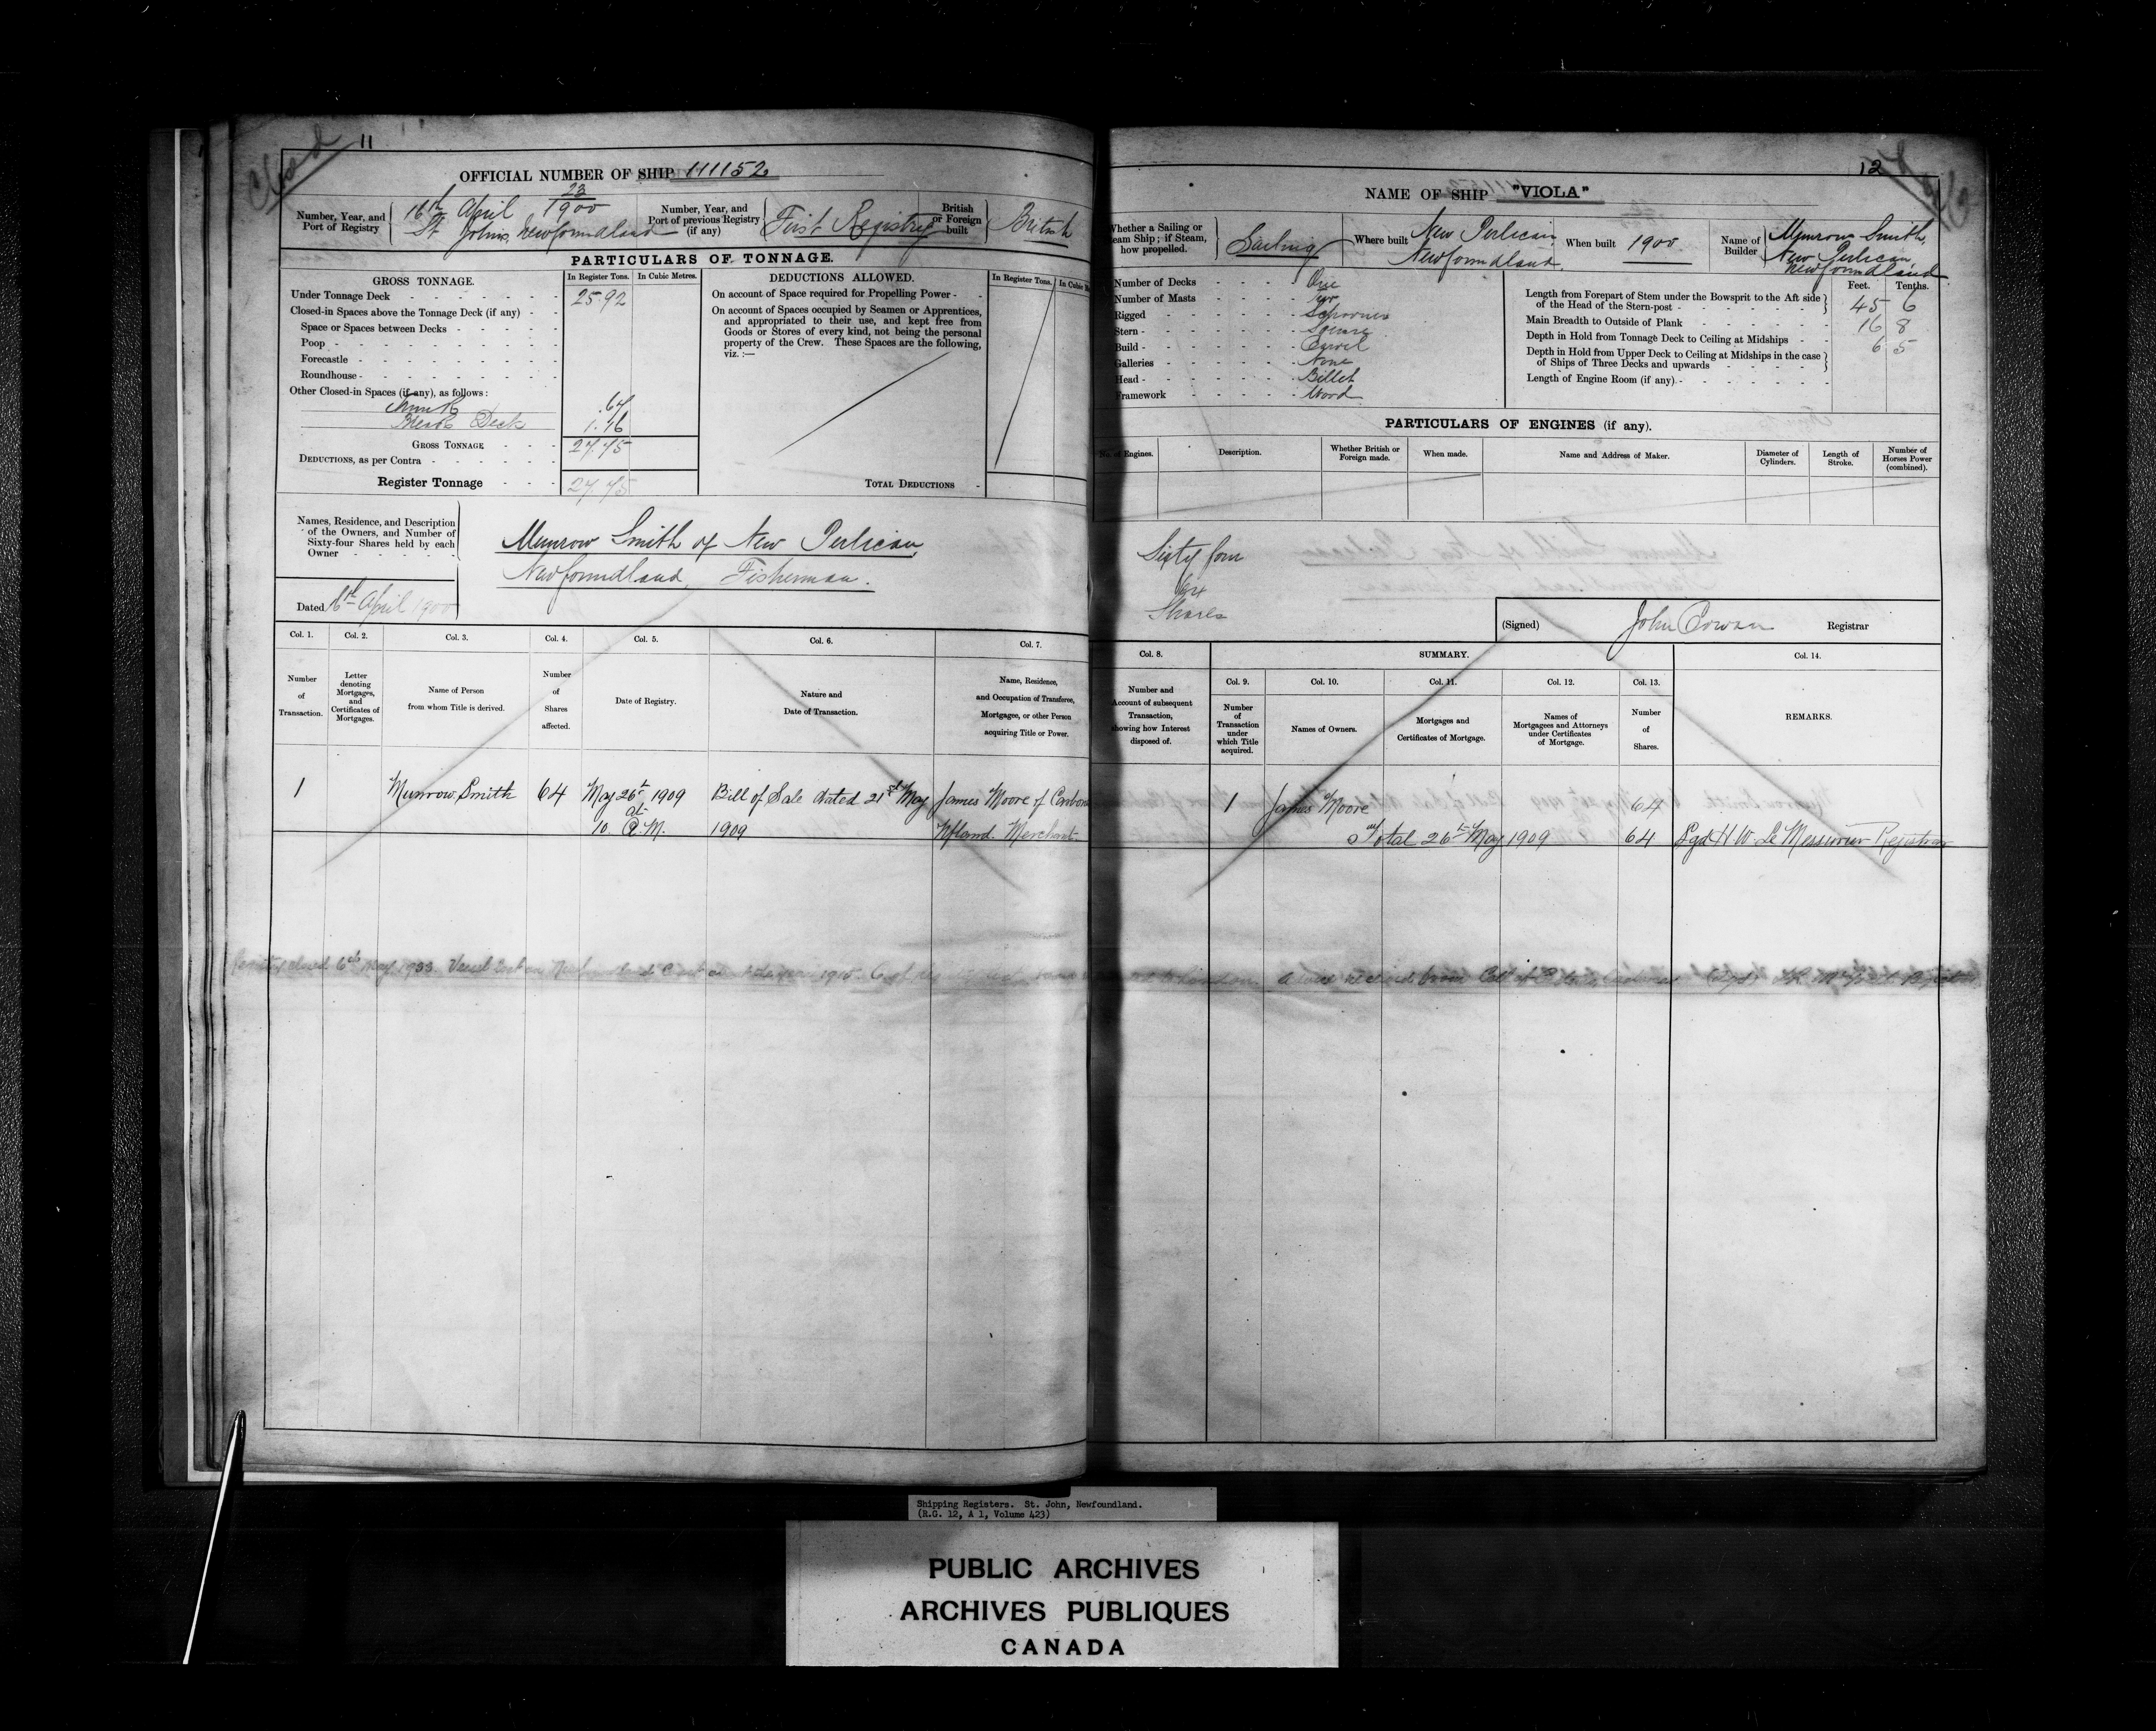 Closed
11
OFFICIAL NUMBER OF SHIP 111152
Number, Year, and Port of Registry
16th April 23/1900
St Johns, Newfoundland
Number, Year, and Port of previous Registry (if any)
First Registry
British or Foreign built
British
PARTICULARS OF TONNAGE.
GROSS TONNAGE.
In Register Tons.
In Cubic Metres.
Under Tonnage Deck 25.92
Closed-in Spaces above the Tonnage Deck (if any)
Space or Spaces between Decks
Poop
Forecastle
Roundhouse
Other Closed-in Spaces (if any), as follows:
Trunk .67
Break Deck 1.16
GROSS TONNAGE 27.75
DEDUCTIONS, as per Contra
Register Tonnage 27.75
DEDUCTIONS ALLOWED.
In Register Tons.
On account of Space required for Propelling Power
On account of Spaces occupied by Seamen or Apprentices,
and appropriated to their use, and kept free from
Goods or Stores of every kind, not being the personal
property of the Crew. These Spaces are the following,
viz. :—
TOTAL DEDUCTIONS
Names, Residence, and Description
of the Owners, and Number of
Sixty-four Shares held by each
Owner
Munrow Smith of New Perlican
Newfoundland, Fisherman.
Dated 16th April 1900
Col. 1.
Number of Transaction.
Col. 2.
Letter denoting Mortgages, and Certificates of Mortgages.
Col. 3.
Name of Person from whom Title is derived.
Col. 4.
Number of Shares affected.
Col. 5.
Date of Registry.
Col. 6.
Nature and Date of Transaction.
Col. 7.
Name, Residence, and Occupation of Transferee, Mortgagee, or other Person acquiring Title or Power.
1
Munrow Smith
64
May 26th 1909
at
10 A.M.
Bill of Sale dated 21st May
1909
James Moore of
Nfland. Merchant
closed 6th May 1933. Vessel lost 1915.
12
NAME OF SHIP "VIOLA"
Whether a Sailing or Steam Ship; if Steam, how propelled.
Sailing
Where built
New Perlican
Newfoundland.
When built 1900.
Name of Builder
Munrow Smith,
New Perlican,
Newfoundland
Number of Decks One
Number of Masts Two
Rigged Schooner
Stern Square
Build Carvel
Galleries None
Head Billet
Framework Wood
Feet. Tenths.
Length from Forepart of Stem under the Bowsprit to the Aft side
of the Head of the Stern-post 45 6
Main Breadth to Outside of Plank 16 8
Depth in Hold from Tonnage Deck to Ceiling at Midships 6 5
Depth in Hold from Upper Deck to Ceiling at Midships in the case
of Ships of Three Decks and upwards
Length of Engine Room (if any)
PARTICULARS OF ENGINES (if any).
No. of Engines.
Description.
Whether British or Foreign made.
When made.
Name and Address of Maker.
Diameter of Cylinders.
Length of Stroke.
Number of Horses Power (combined).
Sixty four
Shares
(Signed) John Cowan Registrar
Col. 8.
Number and Account of subsequent Transaction, showing how Interest disposed of.
SUMMARY.
Col. 9.
Number of Transaction under which Title acquired.
Col. 10.
Names of Owners.
Col. 11.
Mortgages and Certificates of Mortgage.
Col. 12.
Names of Mortgagees and Attorneys under Certificates of Mortgage.
Col. 13.
Number of Shares.
Col. 14.
REMARKS.
1 James Moore 64
Total 26th May 1909 64 Sgd H W Le Messurier Registrar
Shipping Registers. St. John, Newfoundland.
(R.G. 12, A 1, Volume 423)
PUBLIC ARCHIVES
ARCHIVES PUBLIQUES
CANADA